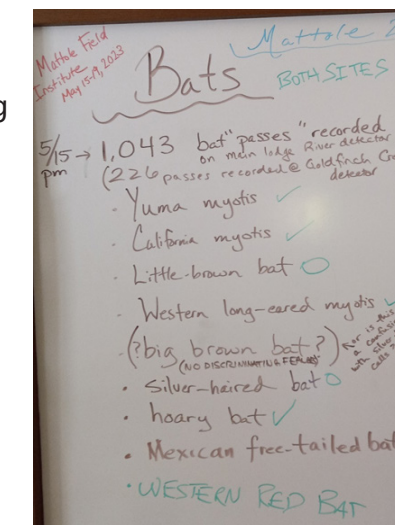 g
Mattole Field
Institute
May 15-19, 2023
Mattole 2
Bats
BOTH SITES
5/15 → 1,043 bat "passes" recorded
pm
on main lodge River detector
(226 passes recorded @ Goldfinch
detector
· Yuma myotis ✓
· California myotis ✓
· Little-brown bat O
· Western long-eared myotis ✓
· (?big brown bat?)
(NO DISCRIMINATING FEALBS)
or is this
a confusion
with silver
calls
· Silver-haired bat O
· hoary bat ✓
· Mexican free-tailed bat
· WESTERN RED BAT